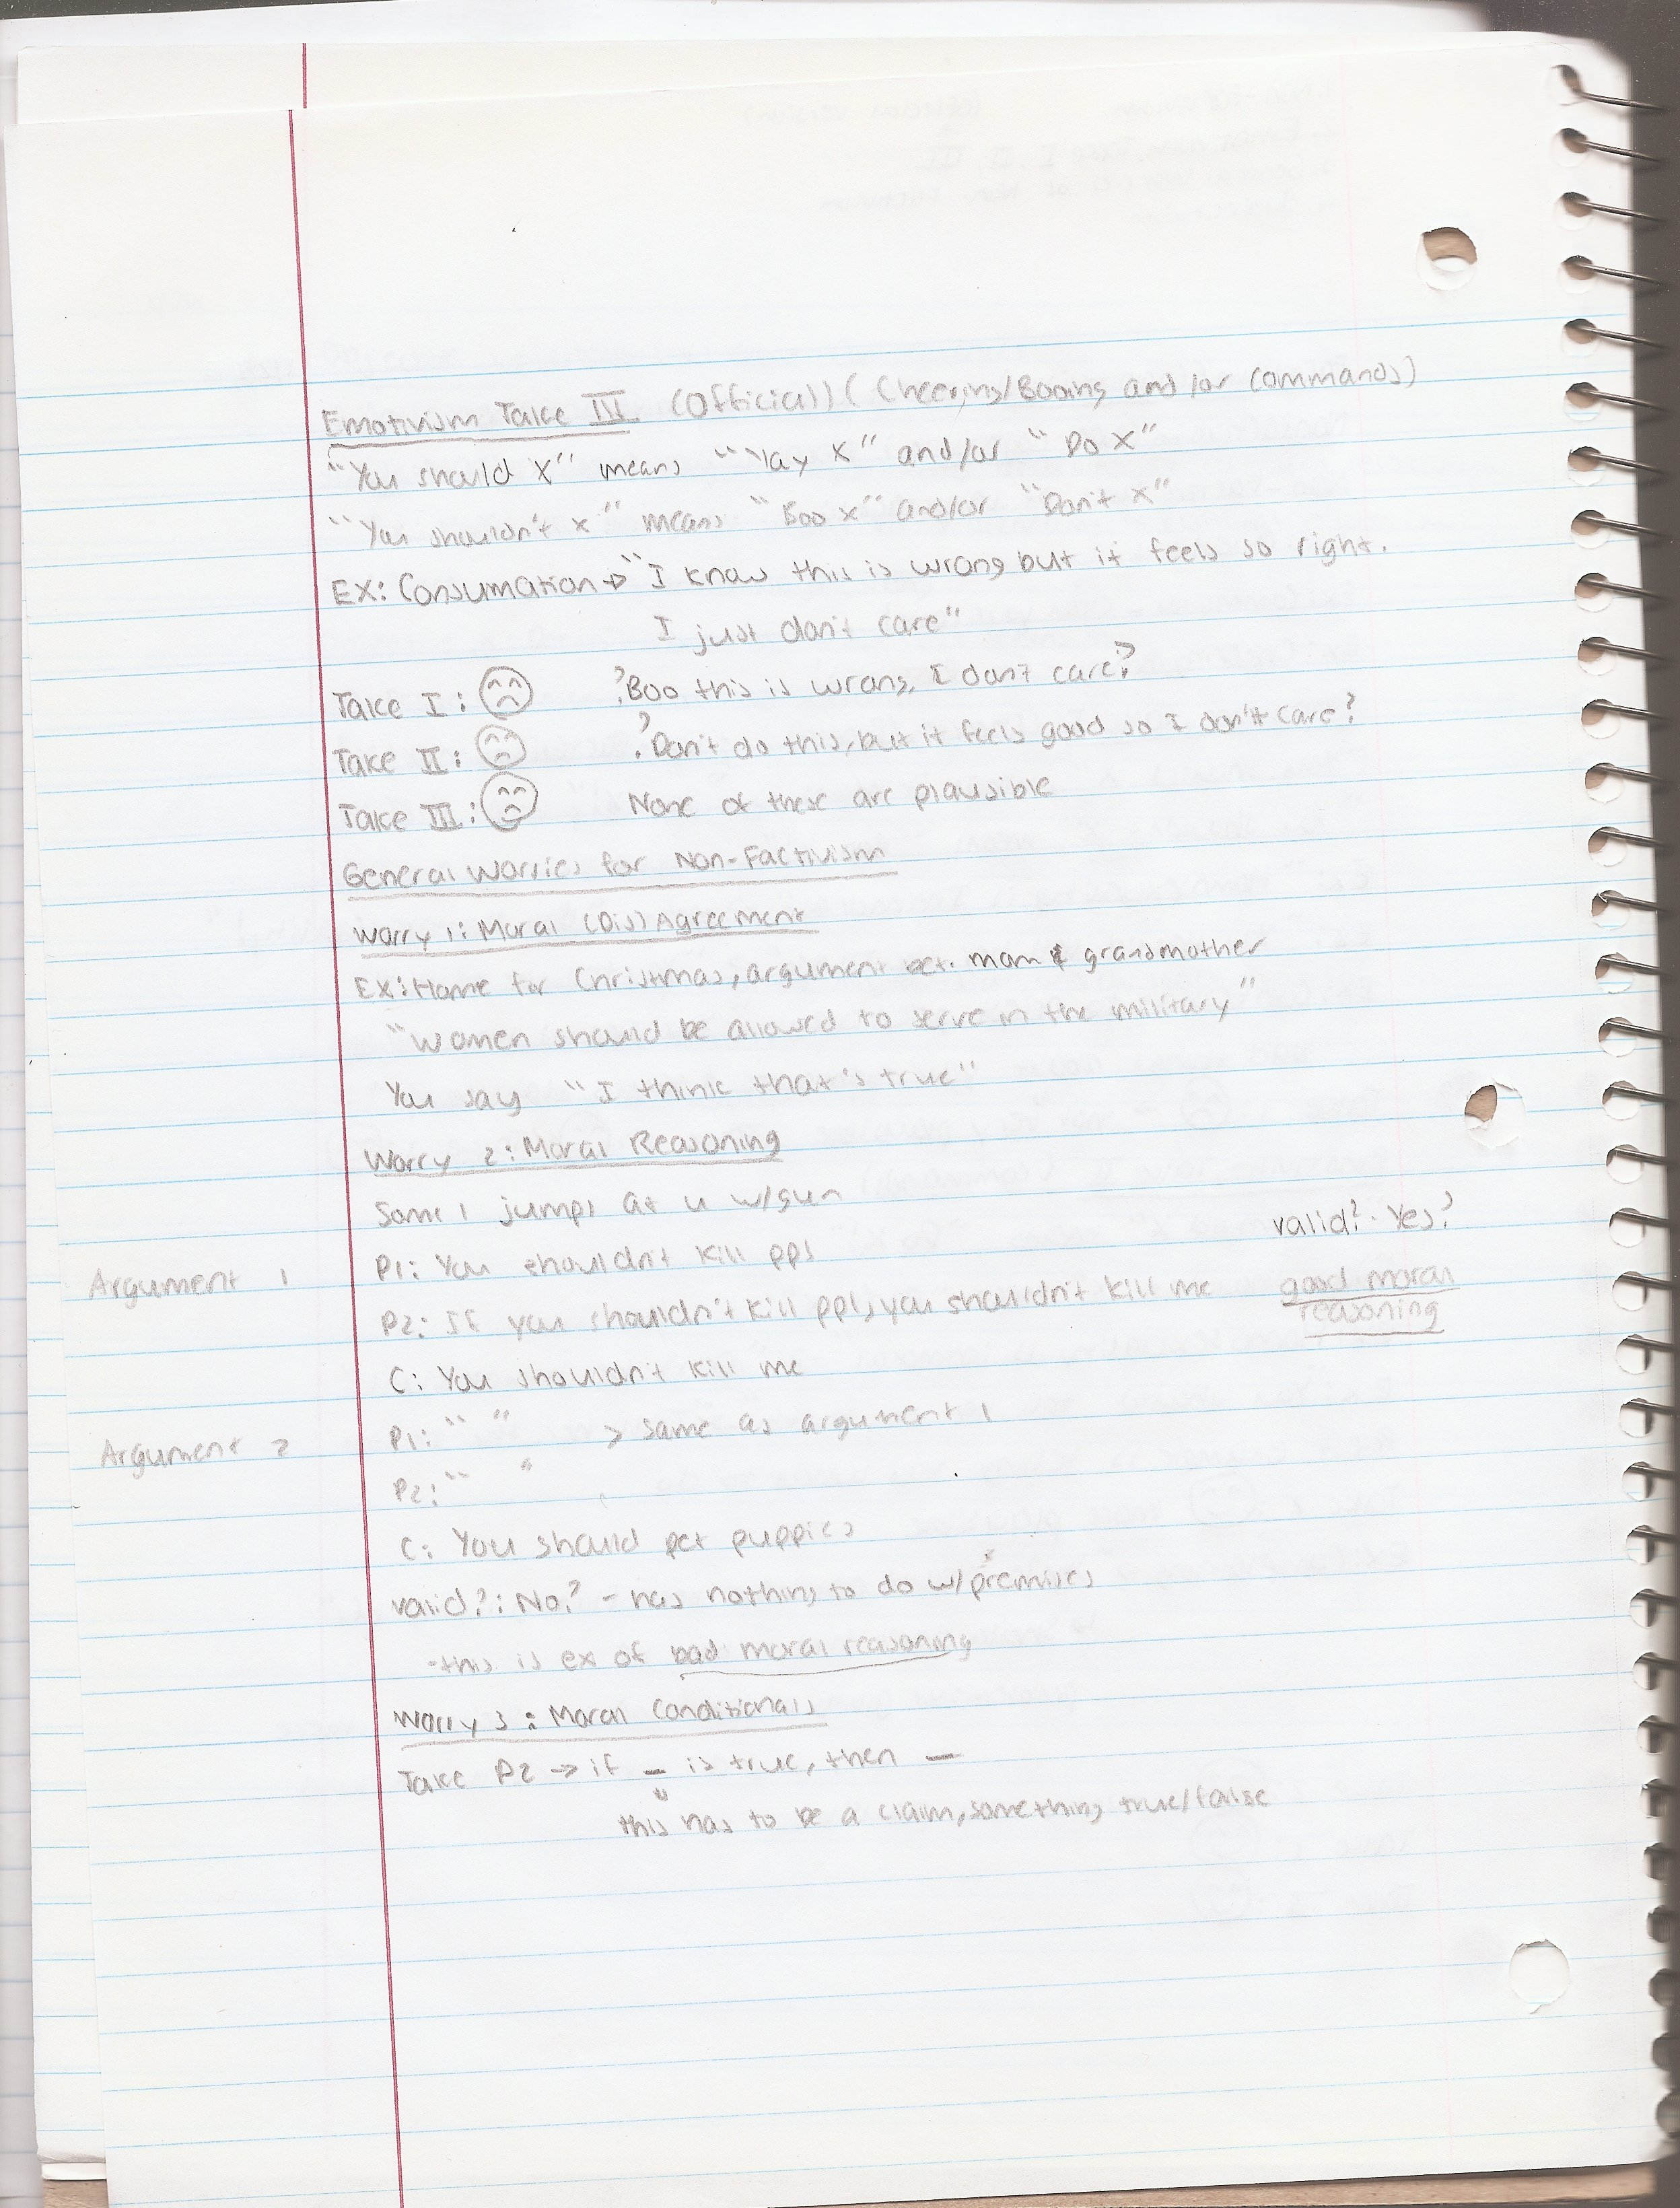 Emotivism Take III (Official) (Cheering/Booing and/or commands)
"You should X" means "Yay X" and/or "Do X"
"You shouldn't x" means "Boo x" and/or "Don't x"
EX: Consumation → "I know this is wrong but it feels so right.
I just don't care"
Take I: ?Boo this is wrong, I don't care?
Take II: ?Don't do this, but it feels good so I don't care?
Take III: None of these are plausible
General Worries for Non-Factivism
Worry 1: Moral (Dis)Agreement
EX: Home for Christmas, argument bet. mom & grandmother
"Women should be allowed to serve in the military"
You say "I think that's true"
Worry 2: Moral Reasoning
Some1 jumps at u w/gun
valid? - Yes?
Argument 1 P1: You shouldn't kill ppl
good moral
P2: If you shouldn't kill ppl, you shouldn't kill me
reasoning
C: You shouldn't kill me
Argument 2 P1: " " > same as argument 1
P2: " "
C: You should pet puppies
valid?: No? - has nothing to do w/premises
- this is ex of bad moral reasoning
Worry 3: Moral Conditionals
Take P2 → if _ is true, then _
this has to be a claim, something true/false